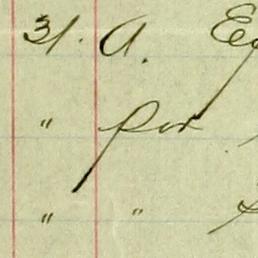 31. A. Eg
" per
" "